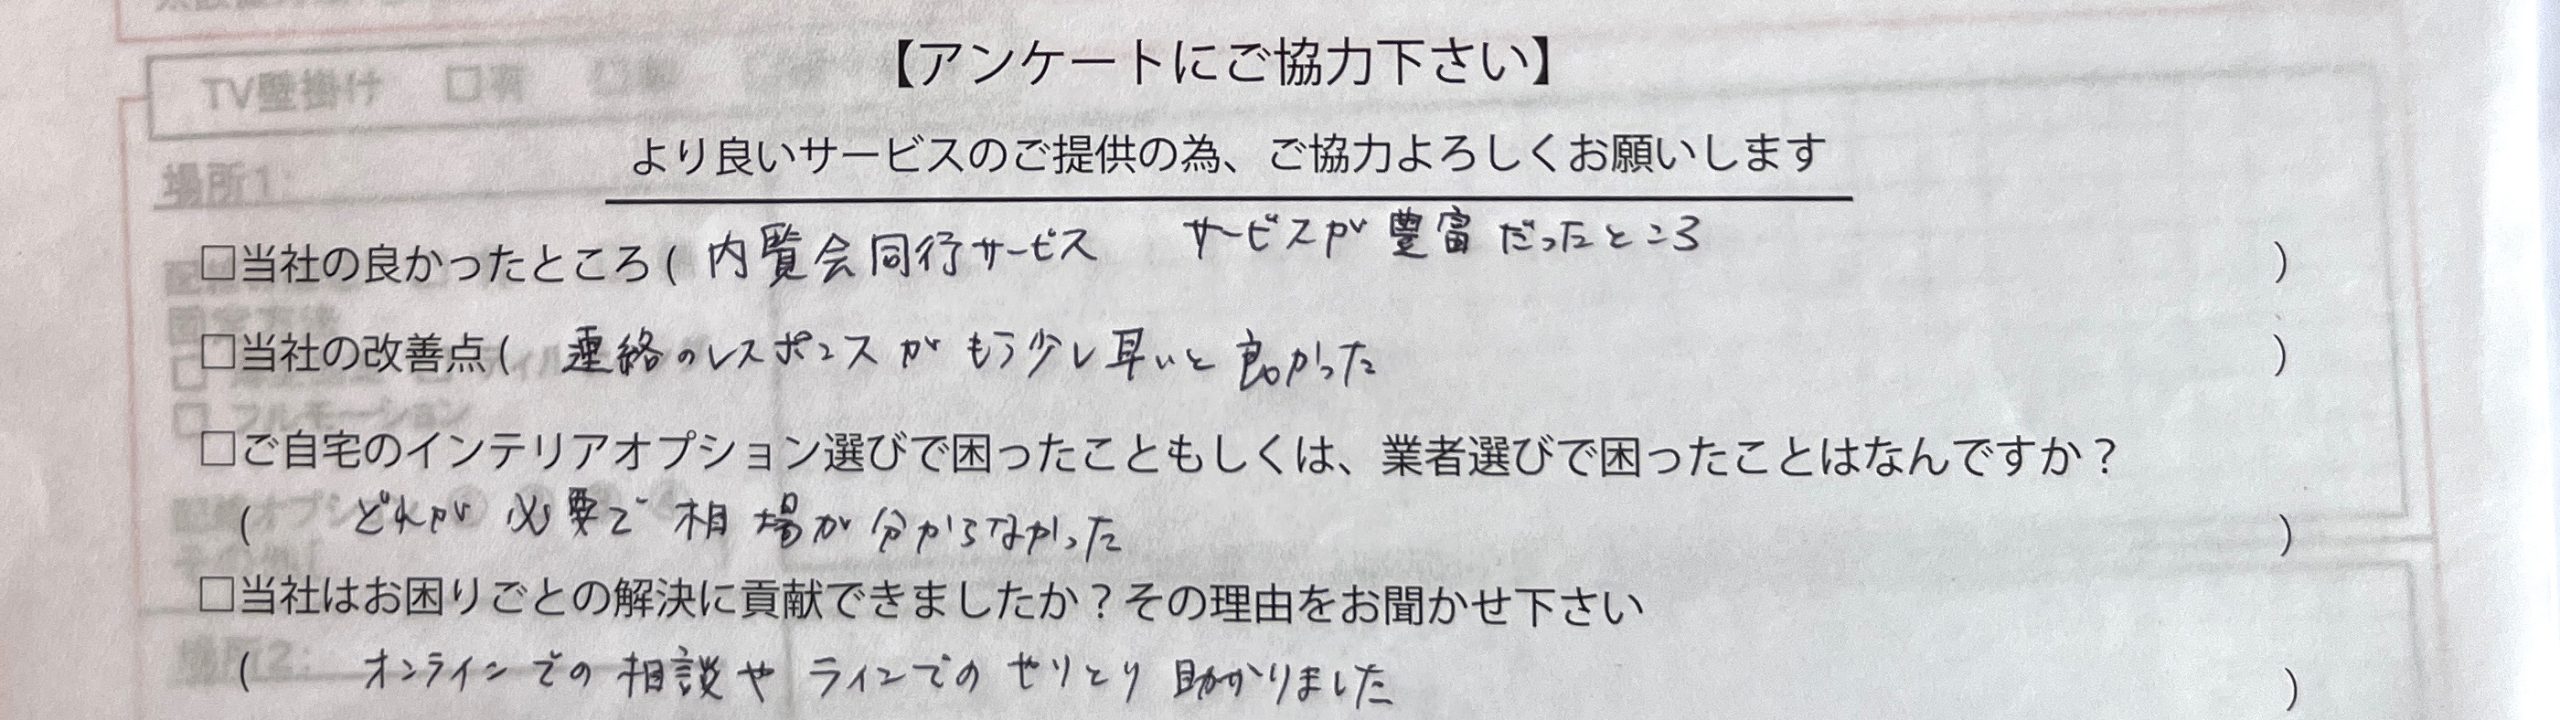 【アンケートにご協力下さい】
TV壁掛け □有
より良いサービスのご提供の為、ご協力よろしくお願いします
場所1
□当社の良かったところ( 内覧会同行サービス サービスが豊富だったところ )
□当社の改善点( 連絡のレスポンスがもう少し早いと良かった )
□フルモーション
□ご自宅のインテリアオプション選びで困ったこともしくは、業者選びで困ったことはなんですか？
( どれが必要で相場が分からなかった )
□当社はお困りごとの解決に貢献できましたか？その理由をお聞かせ下さい
場所2:
( オンラインでの相談やラインでのやりとり助かりました )